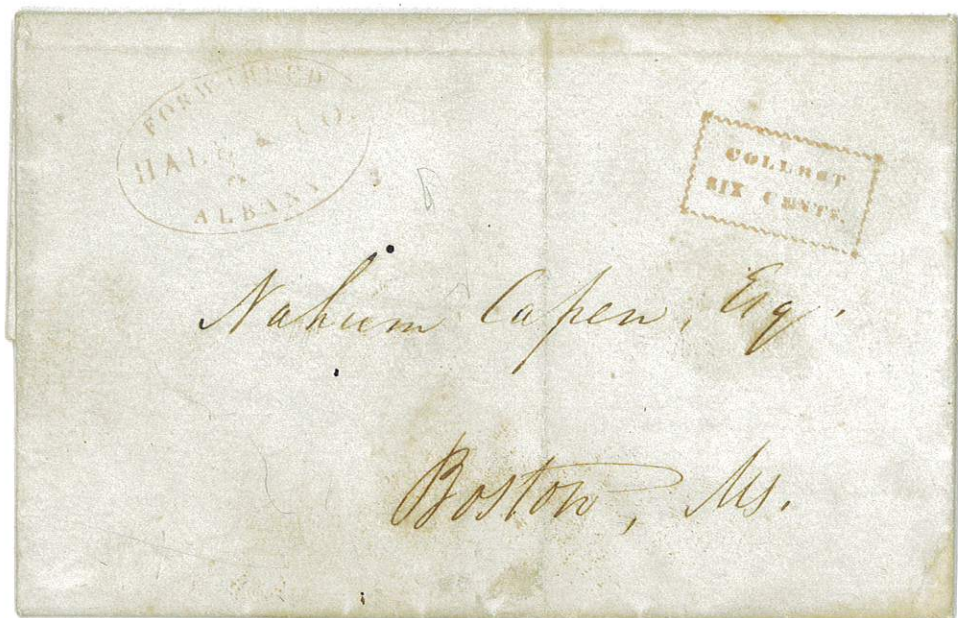 FORWARDED
HALE & CO.
ALBANY
COLLECT
SIX CENTS.
Nahum Capen, Esq.
Boston, Ms.